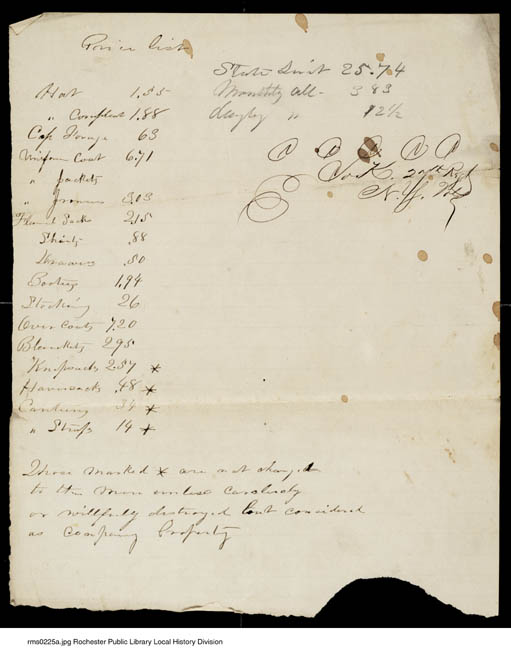 Price list
Hat 1.55
" Compleat 1.88
Cap Forage 63
Uniform Coat 6.71
" Jackets
" Trowsers 3.03
Flannel Sack 2.15
Shirts .88
Drawers .50
Bootees 1.94
Stocking 26
Over Coats 7.20
Blankets 2.95
Knapsacks 2.57 *
Haversacks .48 *
Canteens 34 *
" Straps 14 *
State 25.74
Monthly all - 3 83
" 12½
C C C C C
Co K. 27th Regt
N.Y. Vol
Those marked * are not charged
to the men unless carelessly
or willfully destroyed but considered
as company Property
rma0225a.jpg Rochester Public Library Local History Division